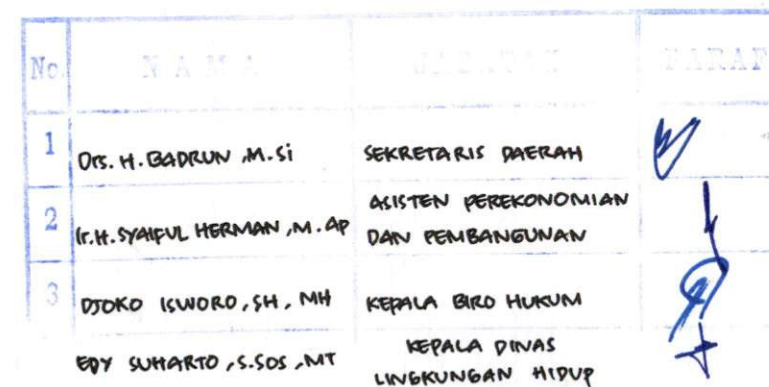 No. NAMA JABATAN PARAF
1 Drs. H. BADRUN, M.Si SEKRETARIS DAERAH
2 Ir. H. SYAIFUL HERMAN, M.AP ASISTEN PEREKONOMIAN
DAN PEMBANGUNAN
3 DJOKO ISWORO, SH, MH KEPALA BIRO HUKUM
EDY SUHARTO, S.SOS, MT KEPALA DINAS
LINGKUNGAN HIDUP